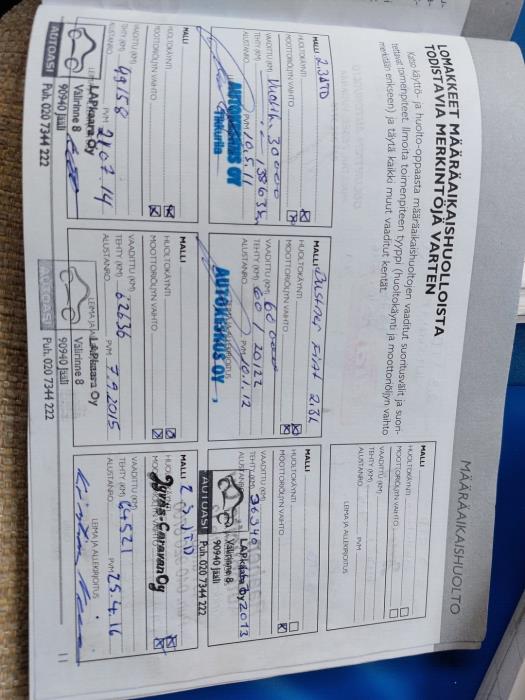 MÄÄRÄAIKAISHUOLTO
LOMAKKEET MÄÄRÄAIKAISHUOLLOISTA
TODISTAVIA MERKINTÖJÄ VARTEN
Katso käyttö- ja huolto-oppaasta määräaikaishuoltojen vaaditut suoritusvälit ja suori-
tettavat toimenpiteet. Ilmoita toimenpiteen tyyppi (huoltokäynti ja moottoriöljyn vaihto
merkitään erikseen) ja täytä kaikki muut vaaditut kentät.
MALLI 2.3JTD
HUOLTOKÄYNTI
MOOTTORIÖLJYN VAIHTO
VAADITTU (KM) 30000
TEHTY (KM)
ALUSTANRO. PVM 10.5.11
AUTOKESKUS OY
Tikkurila
MALLI
HUOLTOKÄYNTI
MOOTTORIÖLJYN VAIHTO
VAADITTU (KM) 60 000
TEHTY (KM) 60 / 20122
ALUSTANRO. PVM 10.1.12
LEIMA JA ALLEKIRJOITUS
AUTOKESKUS OY
MALLI
HUOLTOKÄYNTI
MOOTTORIÖLJYN VAIHTO
VAADITTU (KM)
TEHTY (KM)
ALUSTANRO. PVM
LEIMA JA ALLEKIRJOITUS
MALLI
HUOLTOKÄYNTI
MOOTTORIÖLJYN VAIHTO
VAADITTU (KM)
TEHTY (KM) 49158
ALUSTANRO. PVM 21.07.14
LAPkaara Oy
Välirinne 8
90940 Jääli
AUTOASI Puh. 020 7344 222
MALLI
HUOLTOKÄYNTI
MOOTTORIÖLJYN VAIHTO
VAADITTU (KM)
TEHTY (KM) 62636
ALUSTANRO. PVM 7.9.2015
LAPkaara Oy
Välirinne 8
90940 Jääli
AUTOASI Puh. 020 7344 222
MALLI
HUOLTOKÄYNTI
MOOTTORIÖLJYN VAIHTO
VAADITTU (KM)
TEHTY (KM)
ALUSTANRO. 2013
LAPkaara Oy
Välirinne 8
90940 Jääli
AUTOASI Puh. 020 7344 222
MALLI
Jyväs-Caravan Oy
VAADITTU (KM)
TEHTY (KM) 64521
ALUSTANRO. PVM 25.4.16
LEIMA JA ALLEKIRJOITUS
11